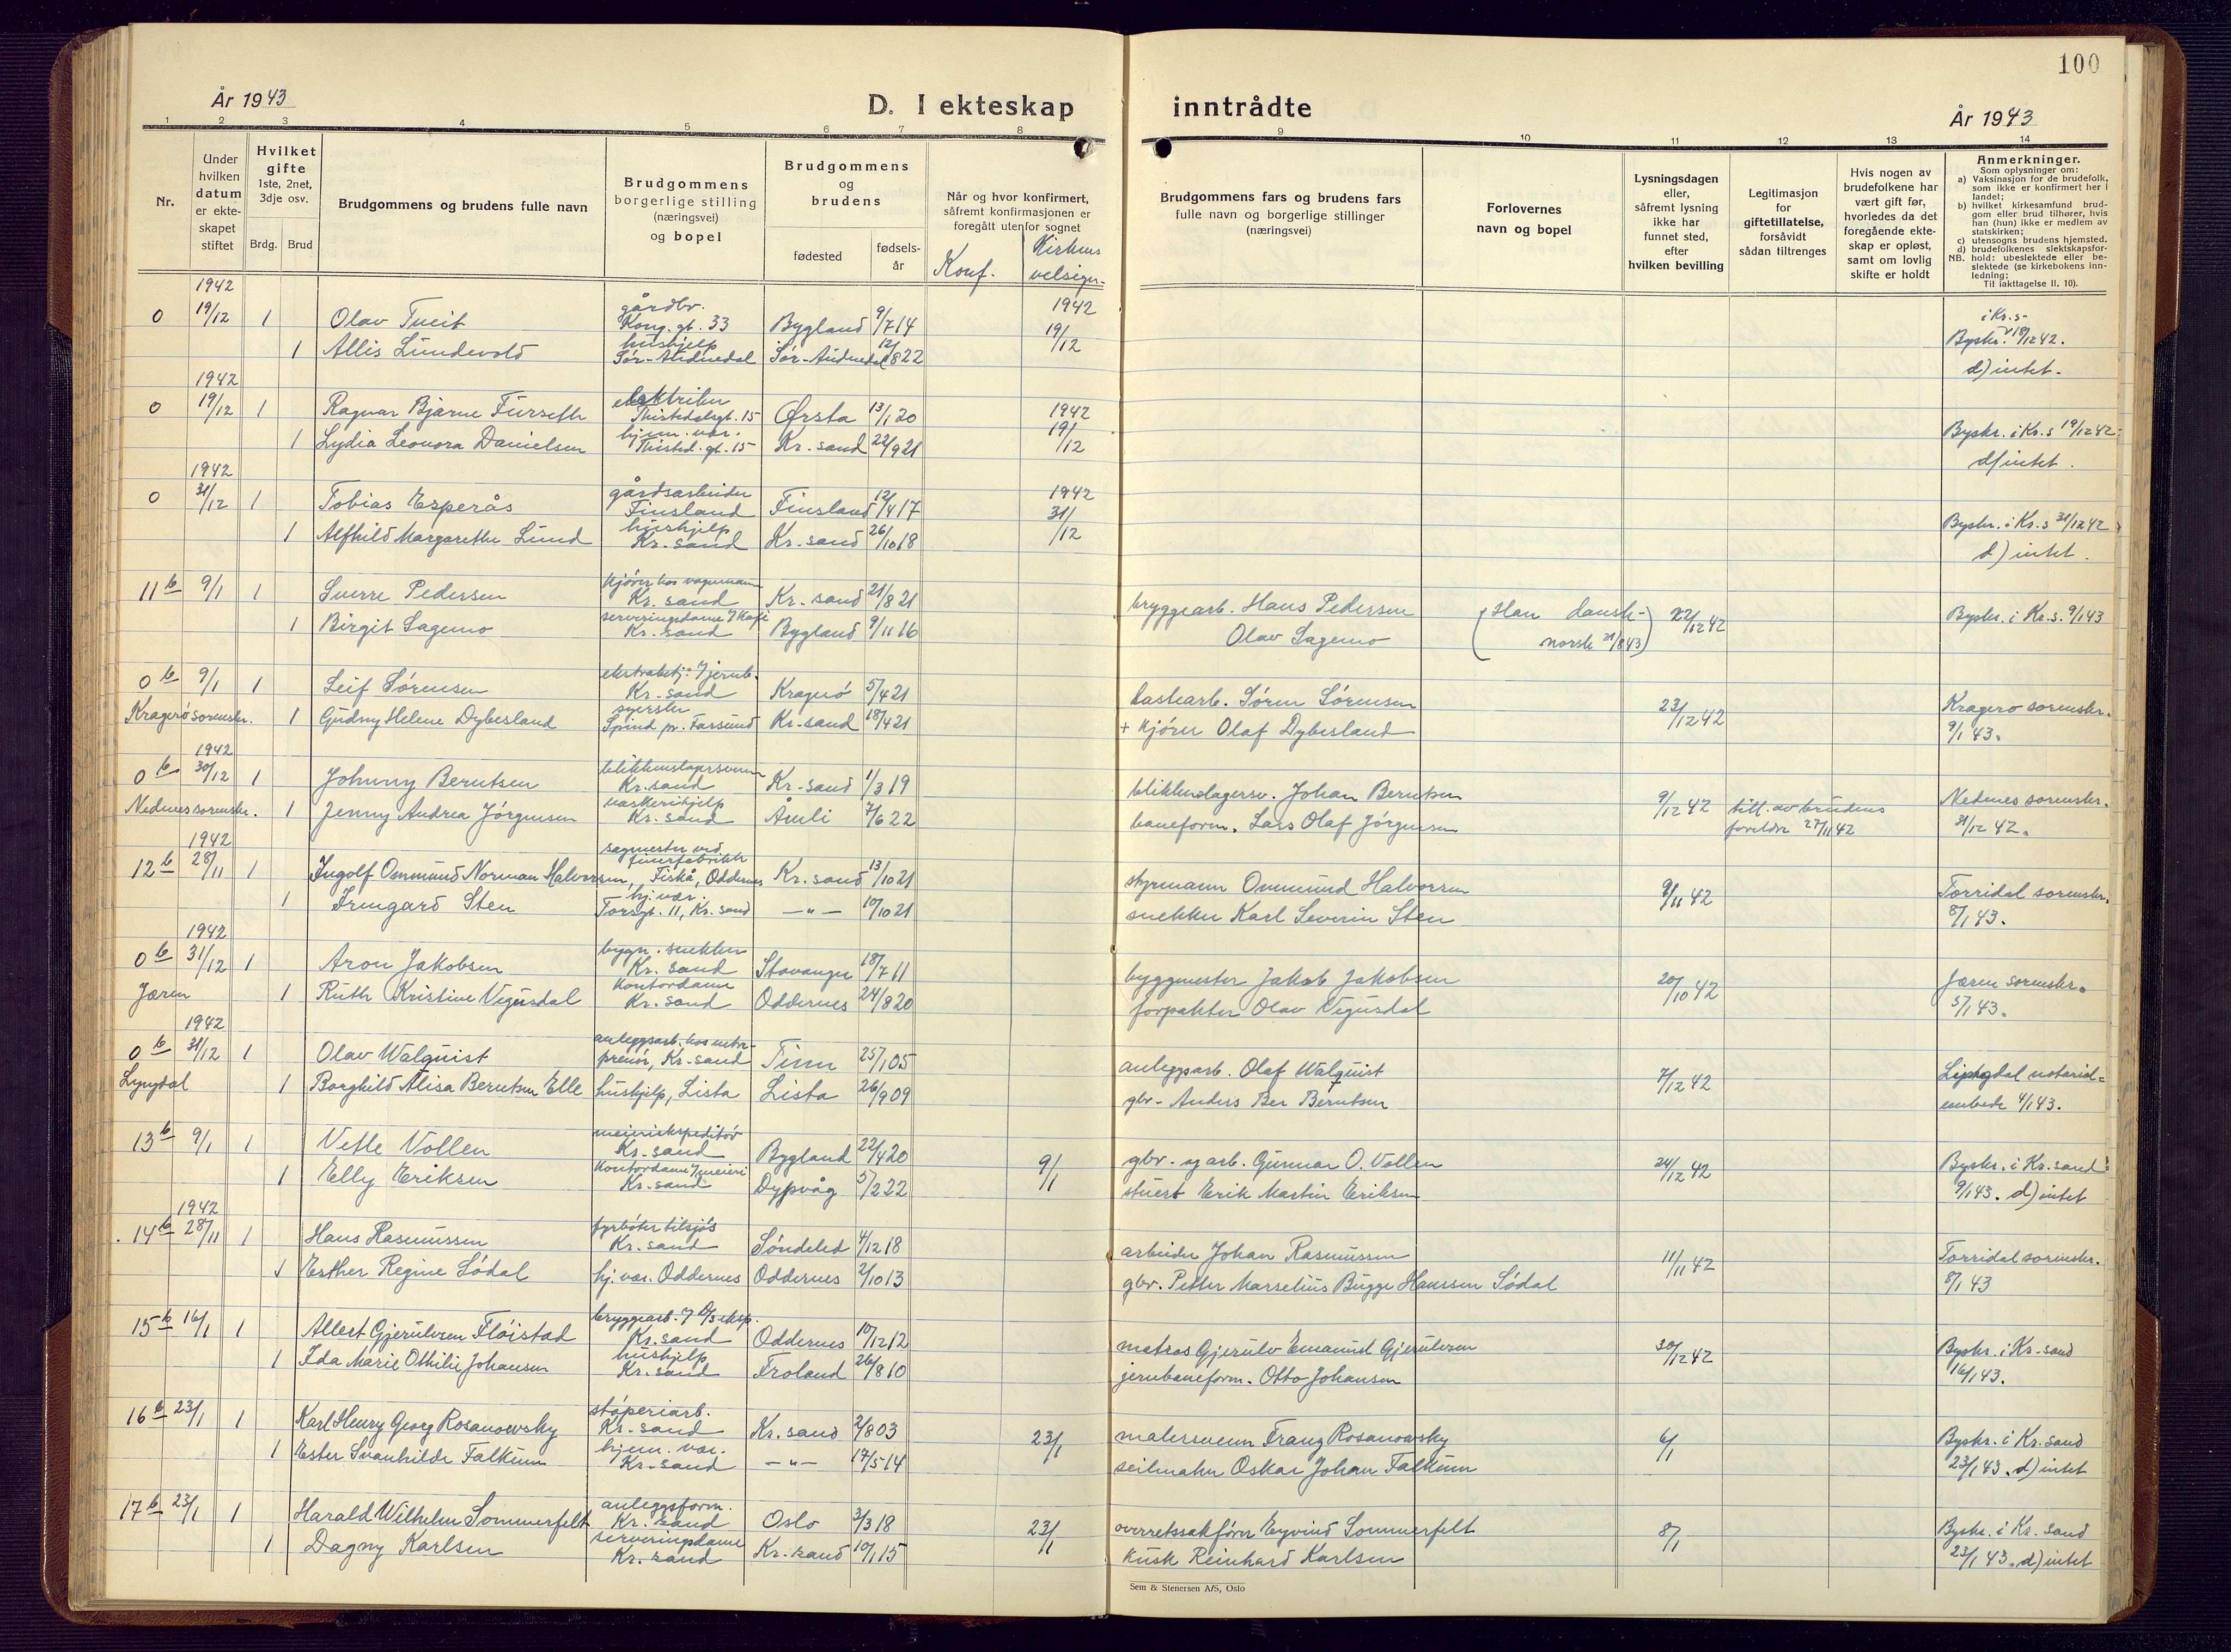 100
År 1943
D. I ekteskap inntrådte
År 1943
1 2 3 4 5 6 7 8 9 10 11 12 13 14
Nr.
Under hvilken datum er ekteskapet stiftet
Hvilket gifte 1ste, 2net, 3dje osv.
Brdg. Brud
Brudgommens og brudens fulle navn
Brudgommens borgerlige stilling (næringsvei) og bopel
Brudgommens og brudens
fødested
fødselsår
Når og hvor konfirmert, såfremt konfirmasjonen er foregått utenfor sognet
Konf.
Kirkens velsign.
Brudgommens fars og brudens fars fulle navn og borgerlige stillinger (næringsvei)
Forlovernes navn og bopel
Lysningsdagen eller, såfremt lysning ikke har funnet sted, efter hvilken bevilling
Legitimasjon for giftetillatelse, forsåvidt sådan tiltrenges
Hvis nogen av brudefolkene har vært gift før, hvorledes da det foregående ekteskap er opløst, samt om lovlig skifte er holdt
Anmerkninger.
Som oplysninger om:
a) Vaksinasjon for de brudefolk, som ikke er konfirmert her i landet;
b) hvilket kirkesamfund brudgom eller brud tilhører, hvis han (hun) ikke er medlem av statskirken;
c) utensogns brudens hjemsted.
d) brudefolkenes slektskapsforhold: ubeslektede eller beslektede (se kirkebokens innledning;
NB.
Til iakttagelse II. 10).
1942
0 19/12 1 Olav Tveit gårdbr. Kong. gt. 33 Bygland 9/7 14 1942 19/12 i Kr.s. Byskr. 18/12 42.
1 Allis Lundevold hushjelp Sør-Audnedal Sør-Audnedal 12/8 22 d) intet.
1942
0 19/12 1 Ragnar Bjarne Furseth elektriker Thistedalsgt. 15 Ørsta 13/1 20 1942 19/12 Byskr. i Kr.s 19/12 42
1 Lydia Leonora Danielsen hjem. vær. Thisted. gt. 15 Kr. sand 22/9 21 d) intet.
1942
0 31/12 1 Tobias Esperås gårdsarbeider Finsland Finsland 12/4 17 1942 31/12 Byskr. i Kr.s 31/12 42
1 Alfhild Margarethe Lund hushjelp Kr. sand Kr. sand 26/10 18 d) intet.
11 b 9/1 1 Sverre Pedersen kjører hos vognmann Kr. sand Kr. sand 21/8 21 bryggearb. Hans Pedersen (Han dansk- norsk 21/8 43) 22/12 42 Byskr. i Kr.s. 9/1 43
1 Birgit Sagemo serveringsdame Kr. sand Bygland 9/11 16 Olav Sagemo
0 b 9/1 1 Leif Sørensen Kr. sand Kragerø 5/4 21 lastearb. Søren Sørensen 23/12 42 Kragerø sorenskr. 9/1 43.
Kragerø sorenskr. 1 Gudny Helene Dybesland syerske Spind pr. Farsund Kr. sand 18/4 21 + kjører Olaf Dybesland
1942
0 b 30/12 1 Johnny Berntsen blikkenslagersvenn Kr. sand Kr. sand 1/3 19 blikkenslagersv. Johan Berntsen 9/12 42 till. av brudens foreldre 27/11 42 Nedenes sorenskr. 31/12 42.
Nedenes sorenskr. 1 Jenny Andrea Jørgensen vaskerihjelp Kr. sand Åmli 7/6 22 baneform. Lars Olaf Jørgensen
1942
12 b 28/11 1 Ingolf Ommund Norman Halvorsen, sagmester ved finerfabrikk Fiskå, Oddernes Kr. sand 13/10 21 styrmann Ommund Halvorsen 9/11 42 Torridal sorenskr. 8/1 43.
1 Irmgard Sten hj. vær. Torsgt. 11, Kr. sand —"— 10/10 21 snekker Karl Severin Sten
1942
0 b 31/12 1 Aron Jakobsen bygn. snekker Kr. sand Stavanger 18/7 11 byggmester Jakob Jakobsen 20/10 42 Jæren sorenskr. 5/1 43.
Jæren 1 Ruth Kristine Vegusdal kontordame Kr. sand Oddernes 24/8 20 forpakter Olav Vegusdal
1942
0 b 31/12 1 Olav Walquist anleggsarb. hos entreprenør, Kr. sand Tinn 25/1 05 anleggsarb. Olaf Walquist 7/12 42 Lyngdal notarialembede 4/1 43.
Lyngdal 1 Borghild Alisa Berntsen Elle hushjelp, Lista Lista 26/9 09 gbr. Anders Ber Berntsen
13 b 9/1 1 Vetle Vollen meieriekspeditør Kr. sand Bygland 22/4 20 9/1 gbr. og arb. Gunnar O. Vollen 24/12 42 Byskr. i Kr. sand 9/1 43. d) intet
1 Elly Eriksen kontordame meieri Kr. sand Dypvåg 5/2 22 stuert Erik Martin Eriksen
1942
14 b 28/11 1 Hans Rasmussen fyrbøter tilsjøs Kr. sand Søndeled 4/12 18 arbeider Johan Rasmussen 11/11 42 Torridal sorenskr. 8/1 43
1 Esther Regine Sødal hj. vær. Oddernes Oddernes 2/10 13 gbr. Petter Marselius Bugge Hanssen Sødal
15 b 16/1 1 Allert Gjerulvsen Fløistad bryggearb. D/S eksp. Kr. sand Oddernes 10/12 12 matros Gjerulv Emanuel Gjerulvsen 30/12 42 Byskr. i Kr. sand 16/1 43.
1 Ida Marie Othilie Johansen hushjelp Kr. sand Froland 26/8 10 jernbaneform. Otto Johansen
16 b 23/1 1 Karl Henry Georg Rosanowsky støperiarb. Kr. sand Kr. sand 2/8 03 23/1 malersvenn Franz Rosanowsky 6/1 Byskr. i Kr. sand 23/1 43. d) intet
1 Ester Svanhilde Falkum hjem. vær. Kr. sand —"— 17/5 14 seilmaker Oskar Johan Falkum
17 b 23/1 1 Harald Wilhelm Sommerfelt anleggsform. Kr. sand Oslo 3/3 18 23/1 overretssakfører Eyvind Sommerfelt 8/1 Byskr. i Kr. sand 23/1 43. d) intet
1 Dagny Karlsen serveringsdame Kr. sand Kr. sand 10/1 15 kusk Reinhard Karlsen
Sem & Stenersen A/S, Oslo